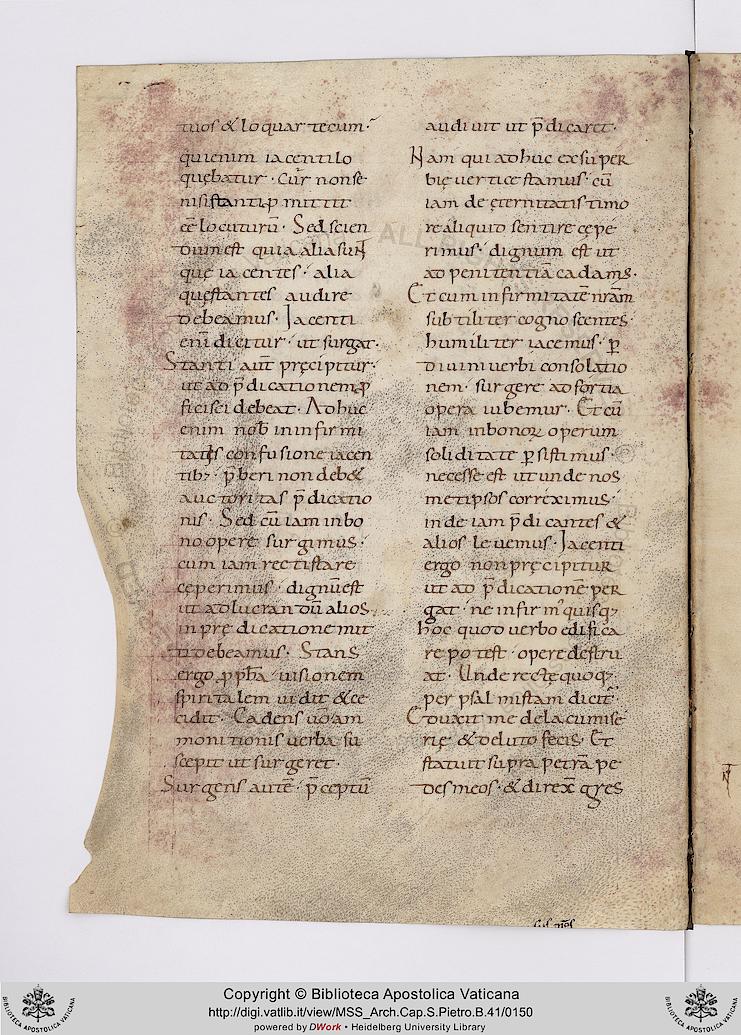 tuos & loquar tecum·
qui enim iacenti lo
quębatur· cur non se
nisi stanti ꝑmittit
ēē locuturū· Sed scien
dum est quia alia sunt
quę iacentes· alia
quę stantes audire
debeamus· Iacenti
eni dicitur· ut surgat·
Stanti aut pręcipitur·
ut ad p̄dicationem ꝓ
ficisci debeat· Adhuc
enim nob in infirmi
tatis confusione iacen
tib; p̄beri non deb&
auctoritas p̄dicatio
nis· Sed cū iam in bo
no opere surgimus·
cum iam recti stare
ceperimus· dignū est
ut ad lucrandū alios·
in prędicatione mit
ti debeamus· Stans
ergo ꝓph̄a uisionem
spiritalem uidit & ce
cidit· Cadens ū̄o am
monitionis uerba su
scepit ut surgeret·
Surgens autē p̄ceptū
audiuit ut p̄dicaret·
Nam qui adhuc ex super
bię uertice stamus· cū
iam de ęternitatis timo
re aliquid sentire cępe
rimus· dignum est ut
ad penitentiā cadamus·
Et cum infirmitatē nrām
subtiliter cognoscentes·
humiliter iacemus· ꝑ
diuini uerbi consolatio
nem· surgere ad fortia
opera iubemur· Et cū
iam in bonoꝝ operum
soliditate ꝑsistimus·
necesse est ut unde nos
metipsos correximus·
inde iam p̄dicantes &
alios leuemus· Iacenti
ergo non pręcipitur
ut ad p̄dicationē per
gat· ne infirmˀ quisq;
hoc quod uerbo edifica
re potest· opere destru
at· Unde rectę quoq;
per psalmistam dicit̄·
Eduxit me de lacu mise
rię & de luto fecis· Et
statuit supra petrā pe
des meos· & direx̄ gres
Copyright © Biblioteca Apostolica Vaticana
http://digi.vatlib.it/view/MSS_Arch.Cap.S.Pietro.B.41/0150
powered by DWork • Heidelberg University Library